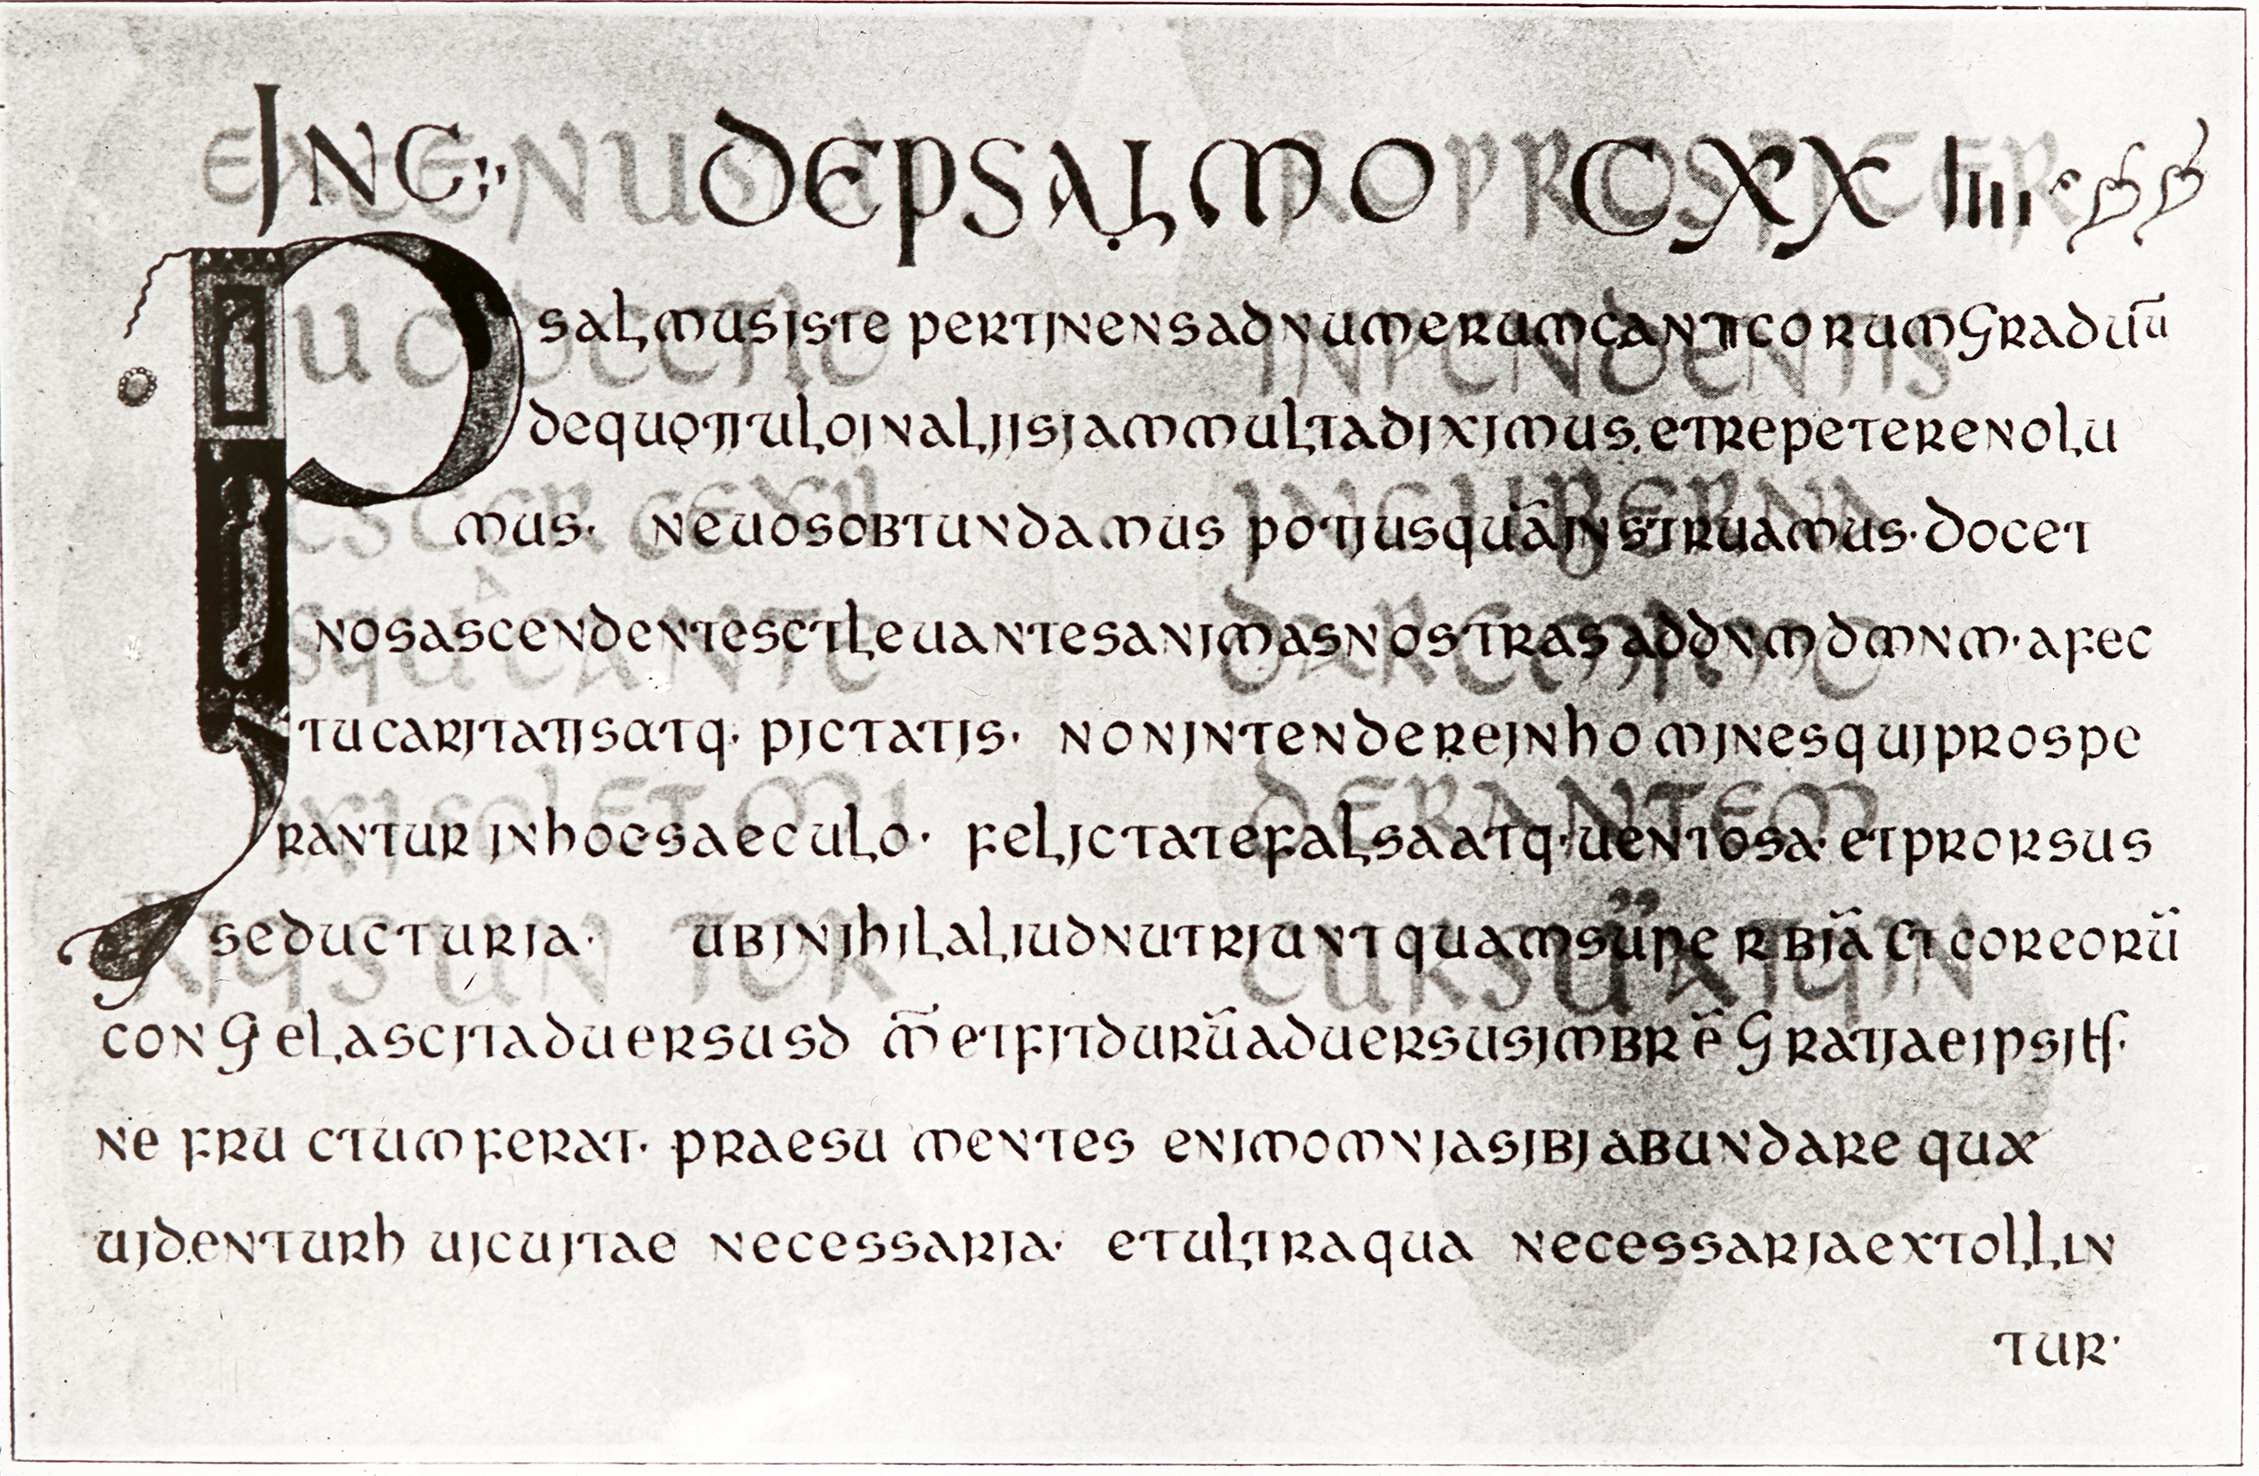 INC DE PSALMO CXXIIII
PSALMUS ISTE PERTINENS AD NUMERUM CANTICORUM GRADUŪ
DE QUO TITULO IN ALIIS IAM MULTA DIXIMUS. ET REPETERE NOLU
MUS· NE UOS OBTUNDAMUS POTIUS QUĀ INSTRUAMUS· DOCET
NOS ASCENDENTES ET LEUANTES ANIMAS NOSTRAS AD DNM DMNM· AFEC
TU CARITATIS ATQ· PIETATIS· NON INTENDERE IN HOMINES QUI PROSPE
RANTUR IN HOC SAECULO· FELICTATE FALSA ATQ· UENTOSA· ET PRORSUS
SEDUCTURIA· UBI NIHIL ALIUD NUTRIUNT QUAM SUPERBIĀ ET COR EORŪ
CONGELASCIT ADUERSUS D M̄ ET FIT DURŪ ADUERSUS IMBRĒ GRATIAE IPSIUS·
NE FRUCTUM FERAT· PRAESUMENTES ENIM OMNIA SIBI ABUNDARE QUAE
UIDENTUR HUIC UITAE NECESSARIA· ET ULTRA QUA NECESSARIA EXTOLLIN
TUR·
RO PROSPICER
INPENDENTIS
INGUBERNA
DERANTEM
CURSUATQIN